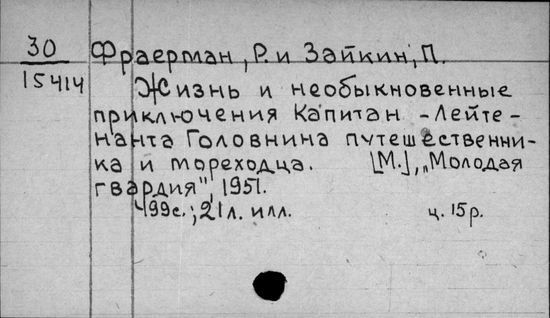 30
15414
Фраерман, Р. и Зайкин, П.
Жизнь и необыкновенные
приключения Капитан-Лейте-
нанта Головнина путешественни-
ка и мореходца. [М.], „Молодая
гвардия", 1951.
499с.; 21л. илл. ц. 15р.